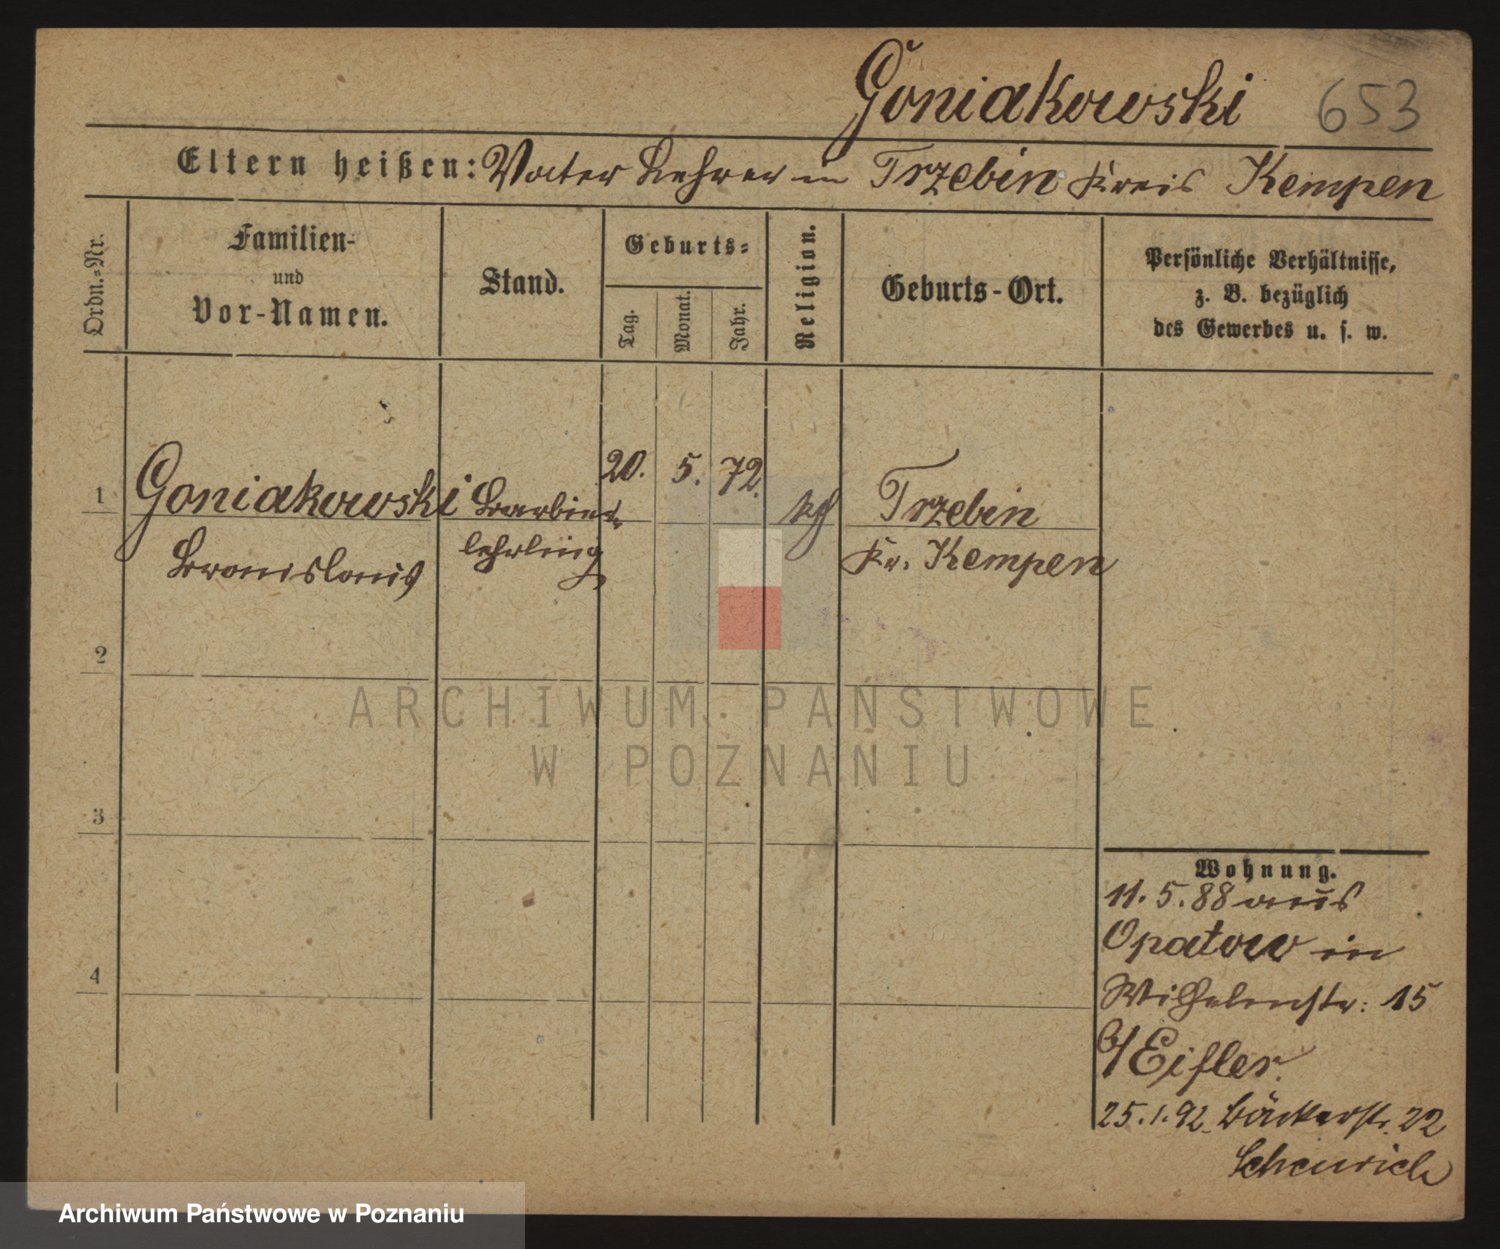 Goniakowski 653
Eltern heißen: Vater Lehrer in Trzebin Kreis Kempen
Ordn.-Nr.
Familien-
und
Vor-Namen.
Stand.
Geburts-
Tag.
Monat.
Jahr.
Religion.
Geburts-Ort.
Persönliche Verhältnisse,
z. B. bezüglich
des Gewerbes u. s. w.
1 Goniakowski Barbier 20. 5. 72. kth Trzebin
Bronislaus lehrling Kr. Kempen
2
3
4
ARCHIWUM PAŃSTWOWE
W POZNANIU
Wohnung.
11. 5. 88 aus
Opatow in
Wilhelmstr: 15
b/ Eifler.
25.1.92. Bäckerstr. 22
Archiwum Państwowe w Poznaniu